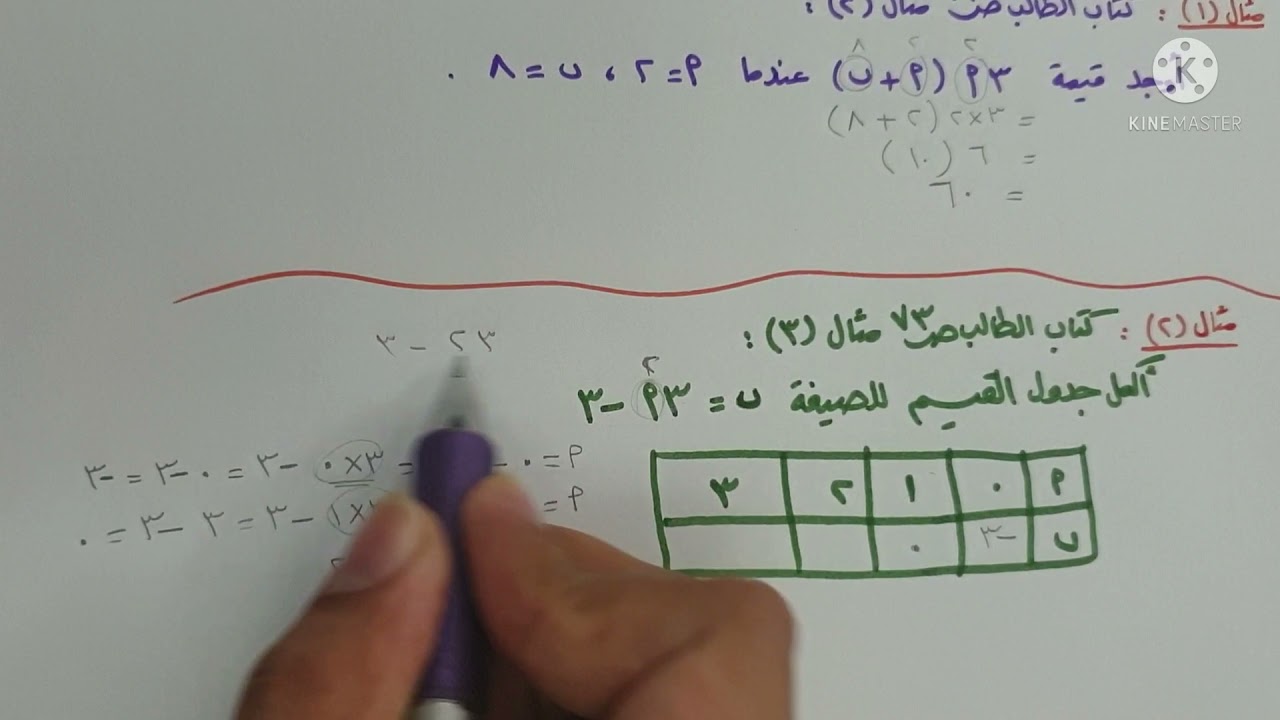 مثال (١) : كتاب الطالب ص مثال (٢) :
أجد قيمة ٣م (م + ن) عندما م = ٢ ، ن = ٨ .
٢ ٢ ٨
= ٣×٢ (٢ + ٨)
= ٦ (١٠)
= ٦٠
KINEMASTER
مثال (٢) : كتاب الطالب ص ٧٣ مثال (٣) :
أكمل جدول القيم للصيغة ن = ٣م – ٣
٢
م ٠ ١ ٢ ٣
ن -٣ ٠
٣٢ – ٣
م = ٠ = ٣×٠ – ٣ = ٠ – ٣ = -٣
م = – ٣ = ٣ – ٣ = ٠